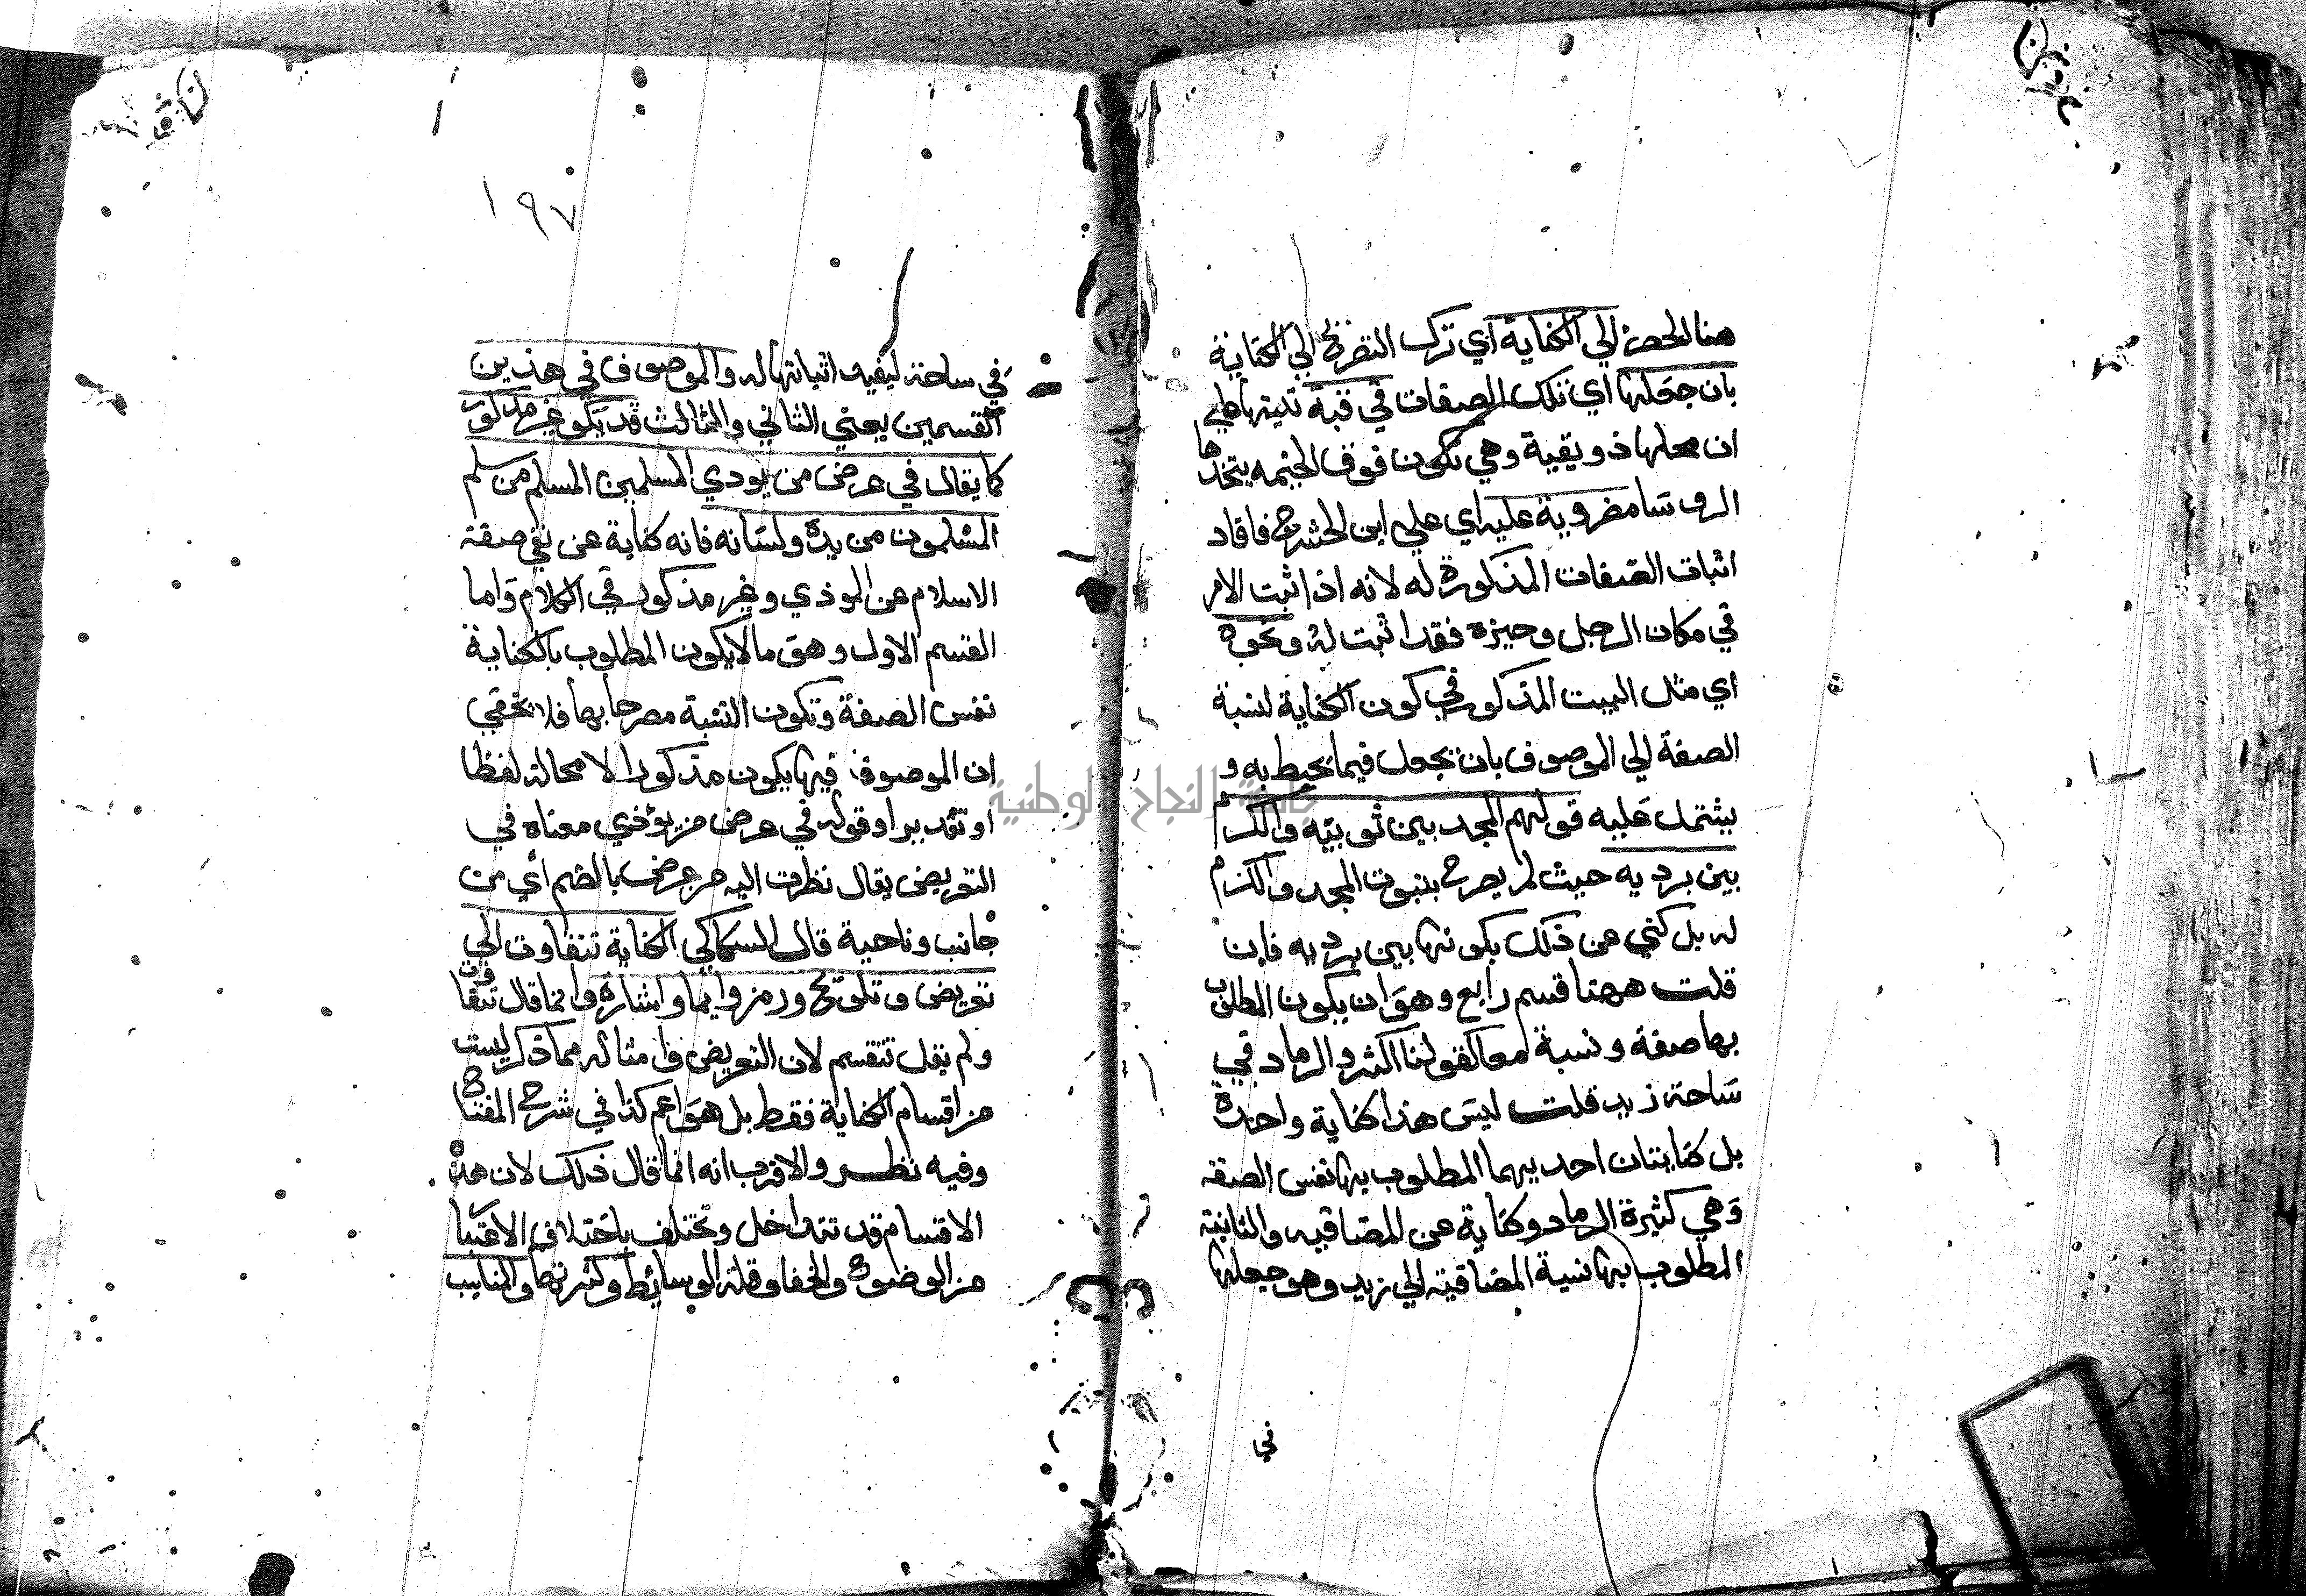 هنا الحصر الي الكناية اي ترك التصريح الي الكناية
بان جعلها اي تلك الصفات في قبة تنبيها علي
ان محلها ذو قبة وهي تكون فوق الخيمه يتخذها
الروسا مضروبة عليه اي علي ابن الحشرج فافاد
اثبات الصفات المذكورة له لانه اذا ثبت الامر
في مكان الرجل وحيزه فقد اثبت له ونحوه
اي مثل البيت المذكور في كون الكناية لنسبة
الصفة الي الموصوف بان يجعل فيما يحيط به و
يشتمل عليه قولهم المجد بين ثوبيه والكرم
بين برديه حيث لم يصرح بثبوت المجد والكرم
له بل كني عن ذلك بكونهما بين برديه فان
قلت ههنا قسم رابع وهو ان يكون المطلوب
بها صفة ونسبة معا كقولنا اكثر الرماد في
ساحة زيد قلت ليس هذا كناية واحدة
بل كنايتان احديهما المطلوب بها نفس الصفة
وهي كثيرة الرماد وكناية عن المضافيه والثانية
المطلوب بها نسبة المضافية الي زيد وهو جعلها
في
١٩٧
في ساحته ليفيد اثباتها له والموصوف في هذين
القسمين يعني الثاني والثالث قد يكون غير مذكور
كما يقال في عرض من يودي المسلمين المسلم من سلم
المسلمون من يده ولسانه فانه كناية عن نفي صفة
الاسلام عن الموذي وغير مذكور في الكلام واما
القسم الاول وهو ما لا يكون المطلوب بالكناية
نفس الصفة وتكون النسبة مصرحا بها فلا يخفي
ان الموصوف فيها يكون مذكورا لا محالة لفظا
او تقديرا وقوله في عرض من يؤذي معناه في
التعريض يقال نظرت اليه من عرض بالضم أي من
جانب وناحية قال السكاكي الكناية تتفاوت الي
تعريض وتلويح ورمز وايما واشارة وانما قال تتفاوت
ولم يقل تنقسم لان التعريض وامثاله مما ذكر ليست
من اقسام الكناية فقط بل هو اعم كذا في شرح المفتاح
وفيه نظر والاقرب انه انما قال ذلك لان هذه
الاقسام قد تتداخل وتختلف باختلاف الاعتبا
من الوضوح والخفا وقلة الوسائط وكثرتها والمناسب
جامعة النجاح الوطنية